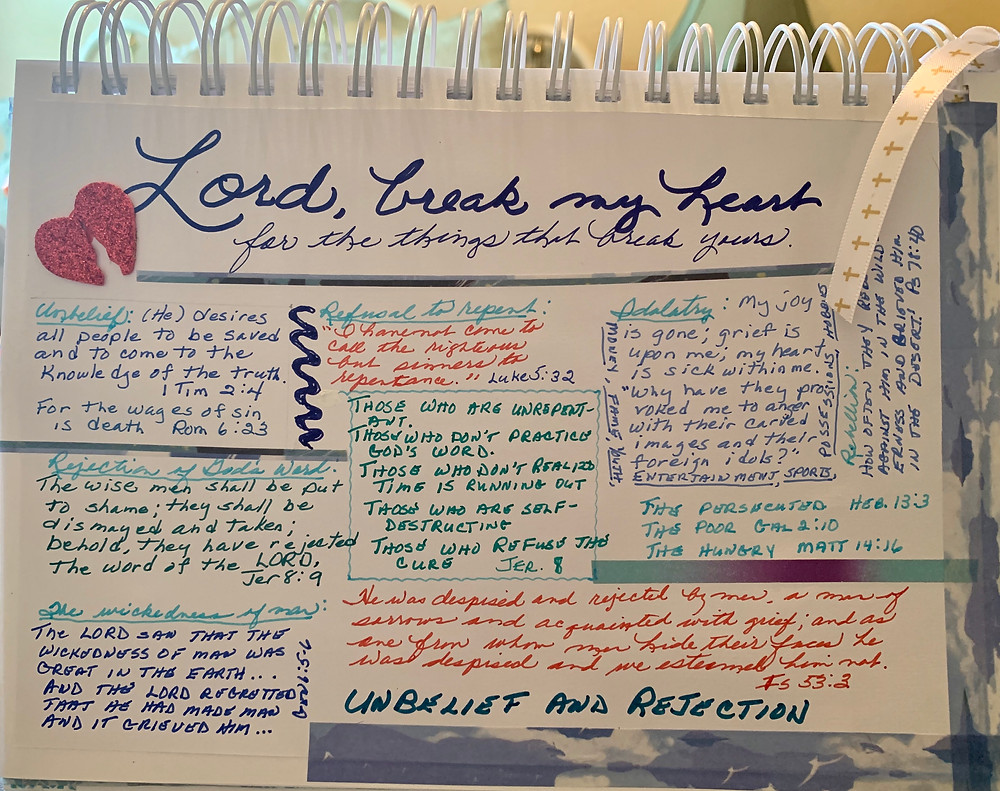 Lord, break my heart
for the things that break yours.
Unbelief: (He) desires
all people to be saved
and to come to the
Knowledge of the truth.
1 Tim 2:4
For the wages of sin
is death Rom 6:23
Rejection of God's Word:
The wise men shall be put
to shame; they shall be
dismayed and taken;
behold, they have rejected
the word of the LORD,
Jer 8:9
The wickedness of man:
THE LORD SAW THAT THE
WICKEDNESS OF MAN WAS
GREAT IN THE EARTH...
AND THE LORD REGRETTED
THAT HE HAD MADE MAN
AND IT GRIEVED HIM...
Refusal to repent:
"I have not come to
call the righteous
but sinners to
repentance." Luke 5:32
THOSE WHO ARE UNREPENT-
ANT.
THOSE WHO DON'T PRACTICE
GOD'S WORD.
THOSE WHO DON'T REALIZE
TIME IS RUNNING OUT
THOSE WHO ARE SELF-
DESTRUCTING
THOSE WHO REFUSE THE
CURE JER. 8
Idolatry: My joy
is gone; grief is
upon me; my heart
is sick within me.
"Why have they pro
voked me to anger
with their carved
images and their
foreign idols?"
ENTERTAINMENT, SPORTS,
POSSESSIONS, HOBBIES
MONEY, FAME,
Rebellion:
HOW OFTEN THEY REB
AGAINST HIM IN THE WILD
ERNESS AND GRIEVED HIM
IN THE DESERT! Ps 78:40
THE PERSECUTED HEB. 13:3
THE POOR GAL 2:10
THE HUNGRY MATT 14:16
He was despised and rejected by men, a man of
sorrows and acquainted with grief; and as
one from whom men hide their faces he
was despised and we esteemed him not.
Is 53:3
UNBELIEF AND REJECTION